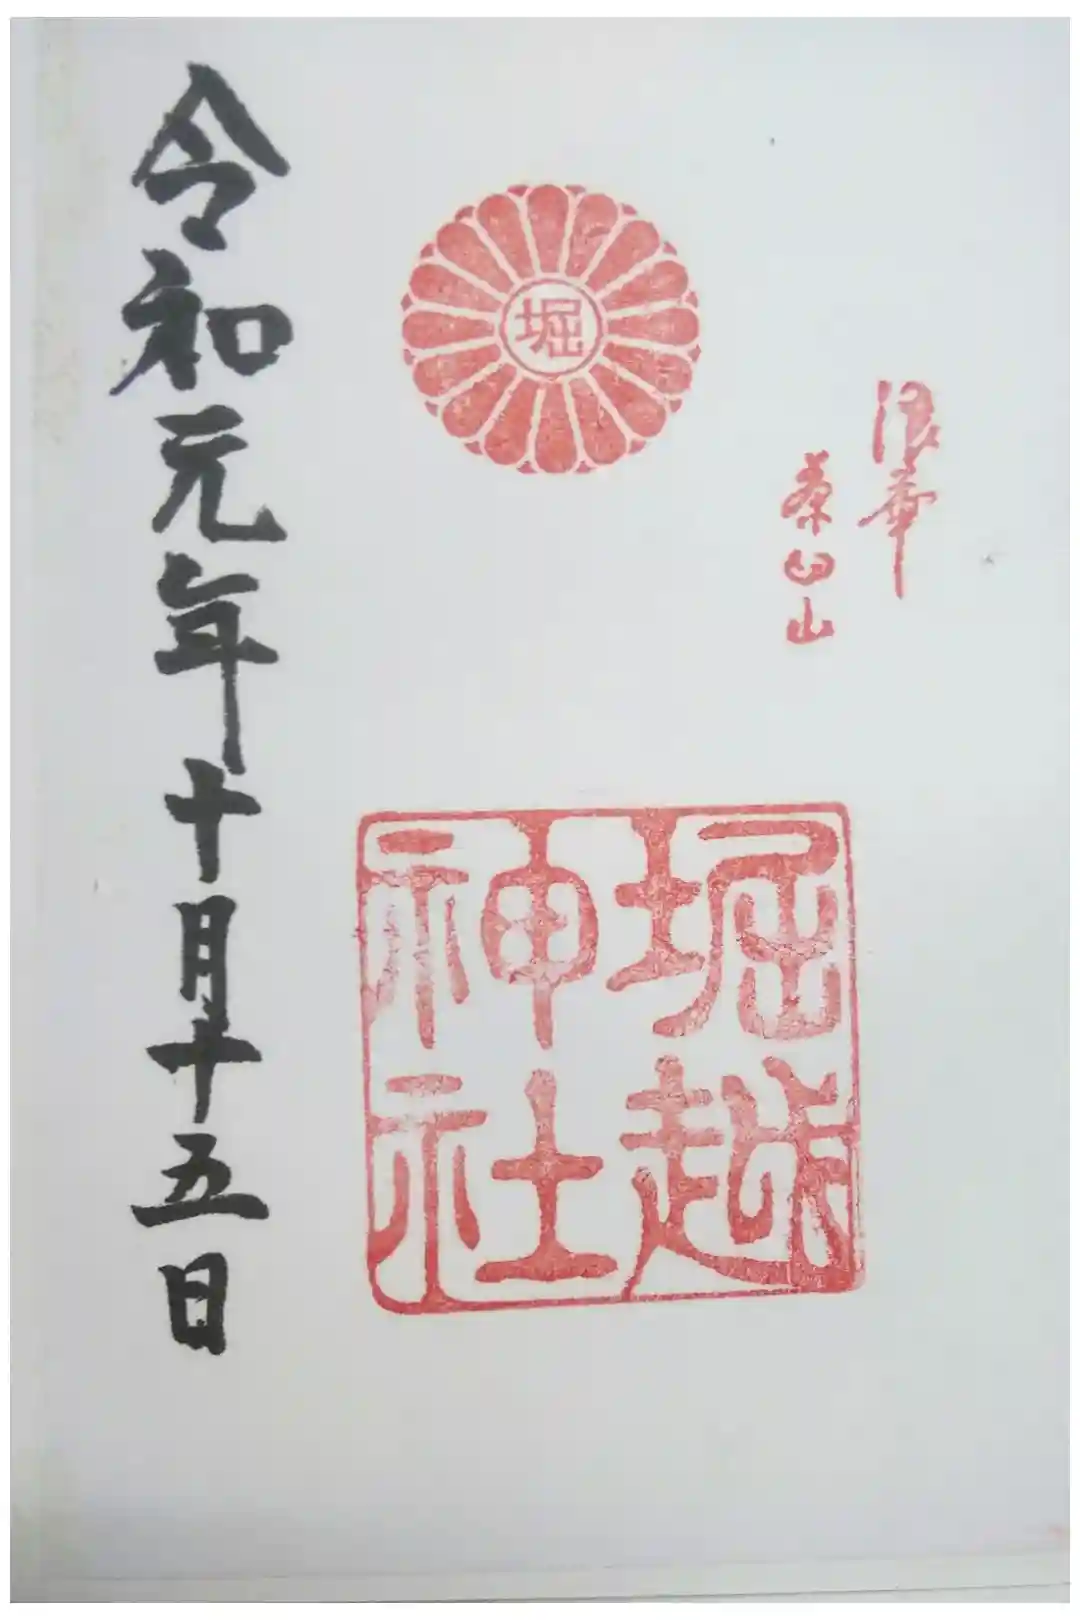 浪華
茶臼山
堀
堀越
神社
令和元年十月十五日